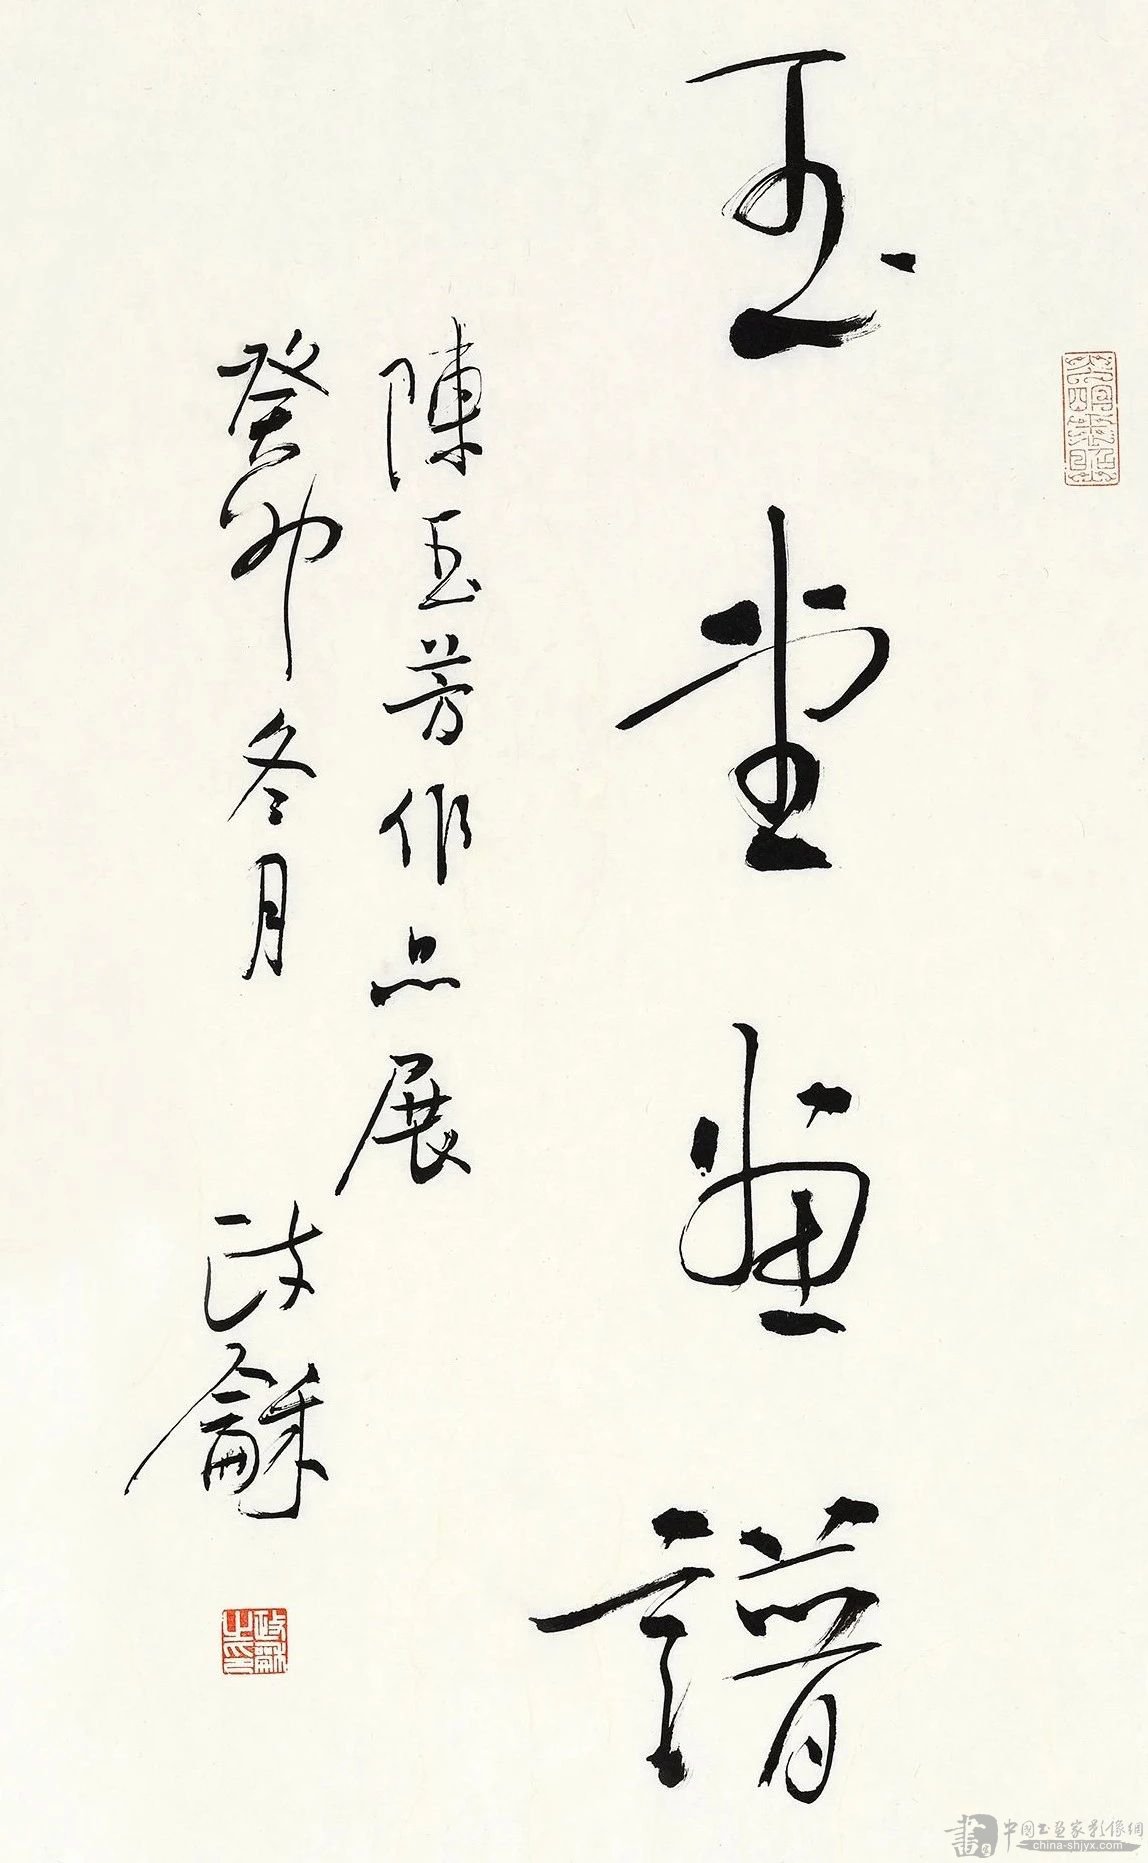 玉堂畫譜
陳玉芳作品展
癸卯冬月 政龢
政龢之印
中国书画家影像網
china-shjyx.com